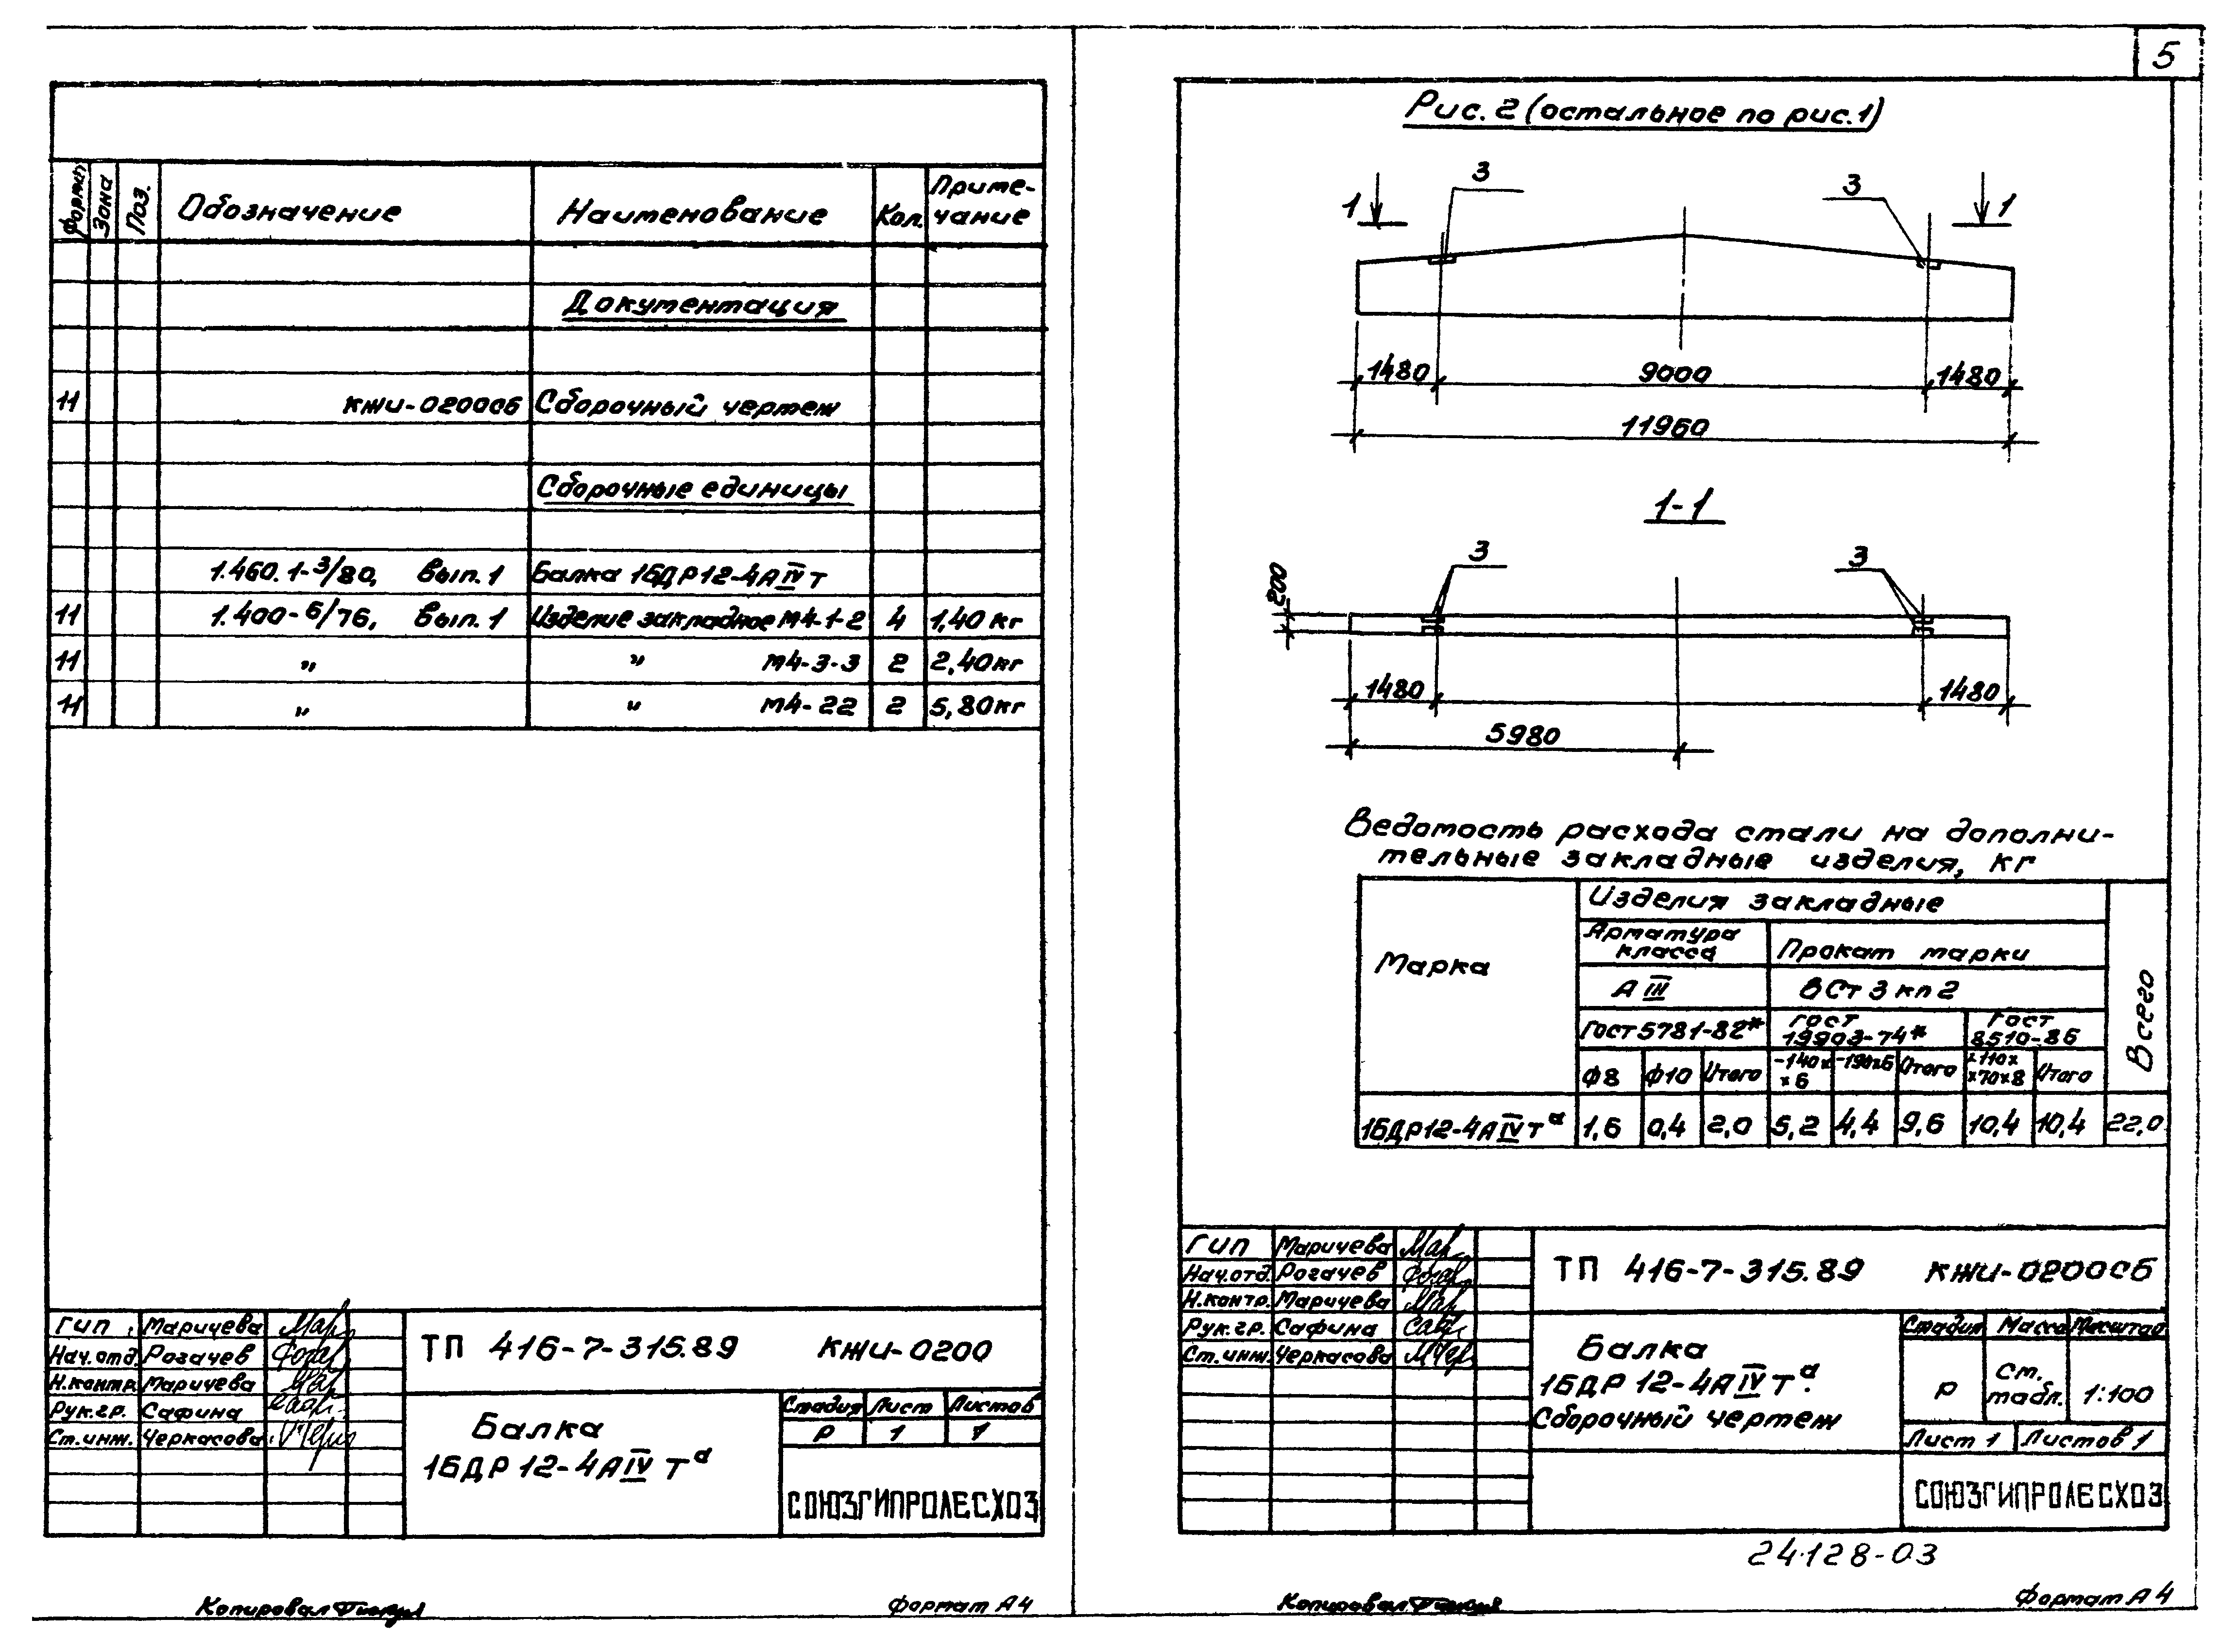 5
Формат Зона Поз. Обозначение Наименование Кол. Приме-
чание
Документация
11 КЖИ-0200СБ Сборочный чертеж
Сборочные единицы
1.460.1-3/80, Вып.1 Балка 1БДР12-4АIVТ
11 1.400-6/76, Вып.1 Изделие закладное М4-1-2 4 1,40кг
11 " " М4-3-3 2 2,40кг
11 " " М4-22 2 5,80кг
ГИП Маричева
Нач.отд. Рогачев
Н.контр. Маричева
Рук.гр. Сафина
Ст.инж. Черкасова
ТП 416-7-315.89 КЖИ-0200
Балка
1БДР 12-4АIVТа
Стадия Лист Листов
Р 1 1
СОЮЗГИПРОЛЕСХОЗ
Копировал
Формат А4
Рис. 2 (остальное по рис.1)
1 3 3 1
1480 9000 1480
11960
1-1
3 3
200
1480 1480
5980
Ведомость расхода стали на дополни-
тельные закладные изделия, кг
Марка Изделия закладные Всего
Арматура
класса Прокат марки
АIII ВСт3кп2
ГОСТ5781-82* ГОСТ
19903-74* ГОСТ
8510-86
Ф8 Ф10 Итого -140х
х6 -190х6 Итого ∟110х
х70х8 Итого
1БДР12-4АIVТа 1,6 0,4 2,0 5,2 4,4 9,6 10,4 10,4 22,0
ГИП Маричева
Нач.отд. Рогачев
Н.контр. Маричева
Рук.гр. Сафина
Ст.инж. Черкасова
ТП 416-7-315.89 КЖИ-0200СБ
Балка
1БДР 12-4АIVТа.
Сборочный чертеж
Стадия Масса Масштаб
Р Ст.
табл. 1:100
Лист 1 Листов 1
СОЮЗГИПРОЛЕСХОЗ
24128-03
Копировал
Формат А4